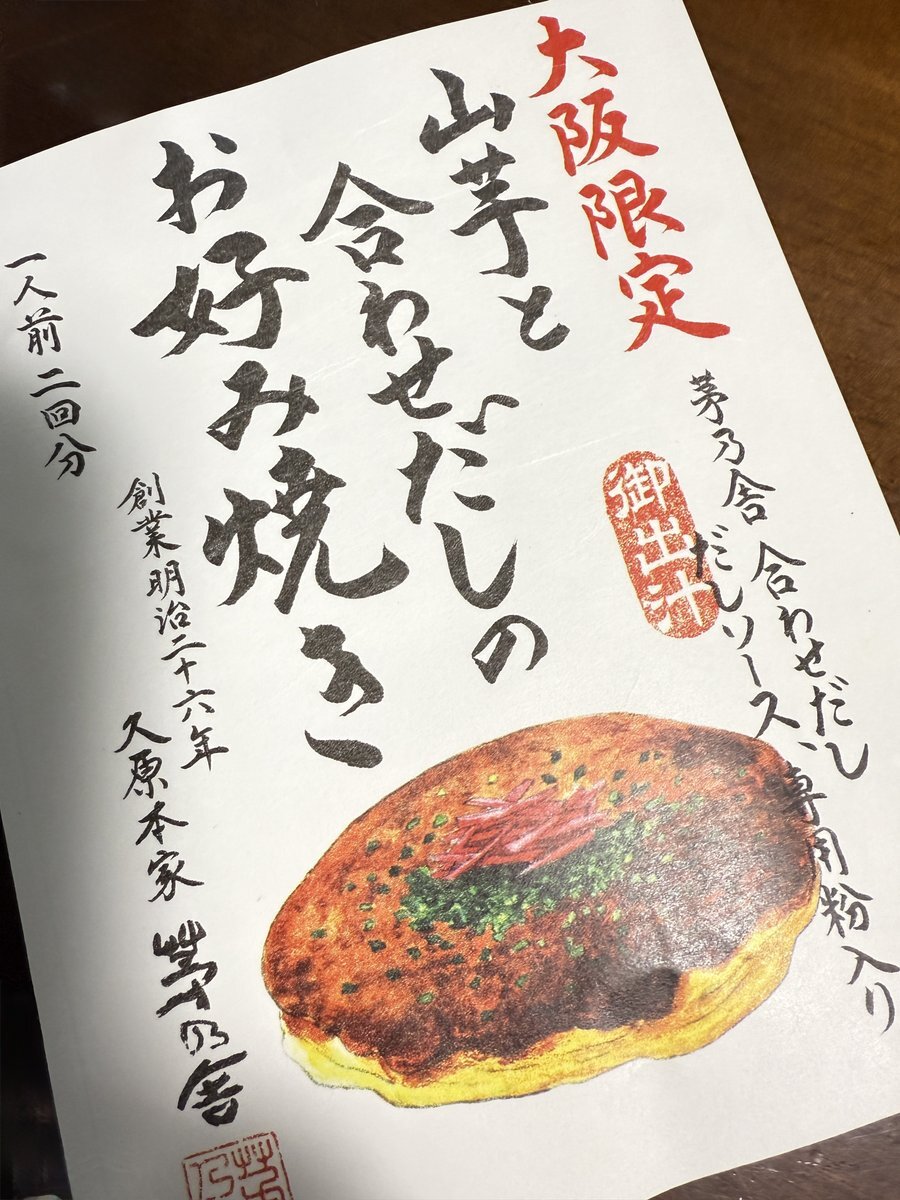 大阪限定
茅乃舎 合わせだし
だしソース、専用粉入り
御出汁
山芋と
合わせだしの
お好み焼き
創業明治二十六年
久原本家 茅乃舎
一人前二回分